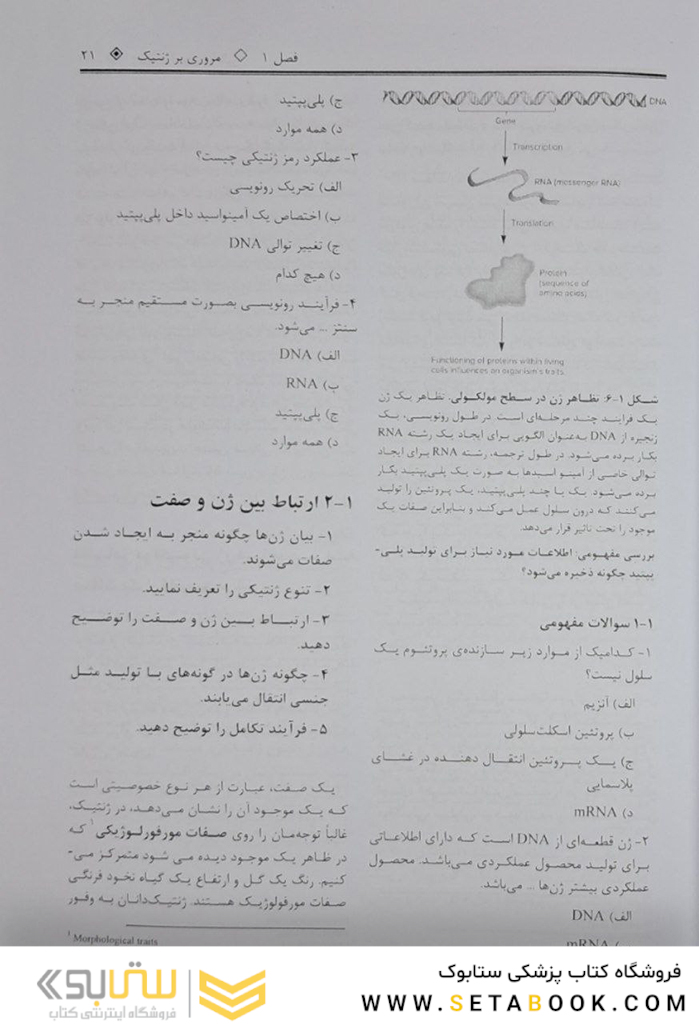 فصل ۱ ◇ مروری بر ژنتیک ◈ ۲۱
DNA
Gene
Transcription
RNA (messenger RNA)
Translation
Protein
(sequence of
amino acids)
Functioning of proteins within living
cells influences an organism's traits.
شکل ۱-۶: تظاهر ژن در سطح مولکولی. تظاهر یک ژن
یک فرایند چند مرحله‌ای است. در طول رونویسی، یک
زنجیره از DNA به‌عنوان الگویی برای ایجاد یک رشته RNA
بکار برده می‌شود. در طول ترجمه، رشته RNA برای ایجاد
توالی خاصی از آمینو اسیدها به صورت یک پلی‌پپتید بکار
برده می‌شود. یک یا چند پلی‌پپتید، یک پروتئین را تولید
می‌کنند که درون سلول عمل می‌کند و بنابراین صفات یک
موجود را تحت تاثیر قرار می‌دهد.
بررسی مفهومی: اطلاعات مورد نیاز برای تولید پلی-
پپتید چگونه ذخیره می‌شود؟
۱-۱ سوالات مفهومی
۱- کدامیک از موارد زیر سازنده‌ی پروتئوم یک
سلول نیست؟
الف) آنزیم
ب) پروتئین اسکلت‌سلولی
ج) یک پروتئین انتقال دهنده در غشای
پلاسمایی
د) mRNA
۲- ژن قطعه‌ای از DNA است که دارای اطلاعاتی
برای تولید محصول عملکردی می‌باشد. محصول
عملکردی بیشتر ژن‌ها ... می‌باشد.
الف) DNA
mRNA
ج) پلی‌پپتید
د) همه موارد
۳- عملکرد رمز ژنتیکی چیست؟
الف) تحریک رونویسی
ب) اختصاص یک آمینواسید داخل پلی‌پپتید
ج) تغییر توالی DNA
د) هیچ کدام
۴- فرآیند رونویسی بصورت مستقیم منجر به
سنتز ... می‌شود.
الف) DNA
ب) RNA
ج) پلی‌پپتید
د) همه موارد
۲-۱ ارتباط بین ژن و صفت
۱- بیان ژن‌ها چگونه منجر به ایجاد شدن
صفات می‌شوند.
۲- تنوع ژنتیکی را تعریف نمایید.
۳- ارتباط بین ژن و صفت را توضیح
دهید.
۴- چگونه ژن‌ها در گونه‌های با تولید مثل
جنسی انتقال می‌یابند.
۵- فرآیند تکامل را توضیح دهید.
یک صفت، عبارت از هر نوع خصوصیتی است
که یک موجود آن را نشان می‌دهد، در ژنتیک،
غالباً توجه‌مان را روی صفات مورفورلوژیکی۱ که
در ظاهر یک موجود دیده می شود متمرکز می-
کنیم. رنگ یک گل و ارتفاع یک گیاه نخود فرنگی
صفات مورفولوژیک هستند. ژنتیک‌دانان به وفور
1 Morphological traits
فروشگاه کتاب پزشکی ستابوک
WWW.SETABOOK.COM
ستابوک
فروشگاه اینترنتی کتاب